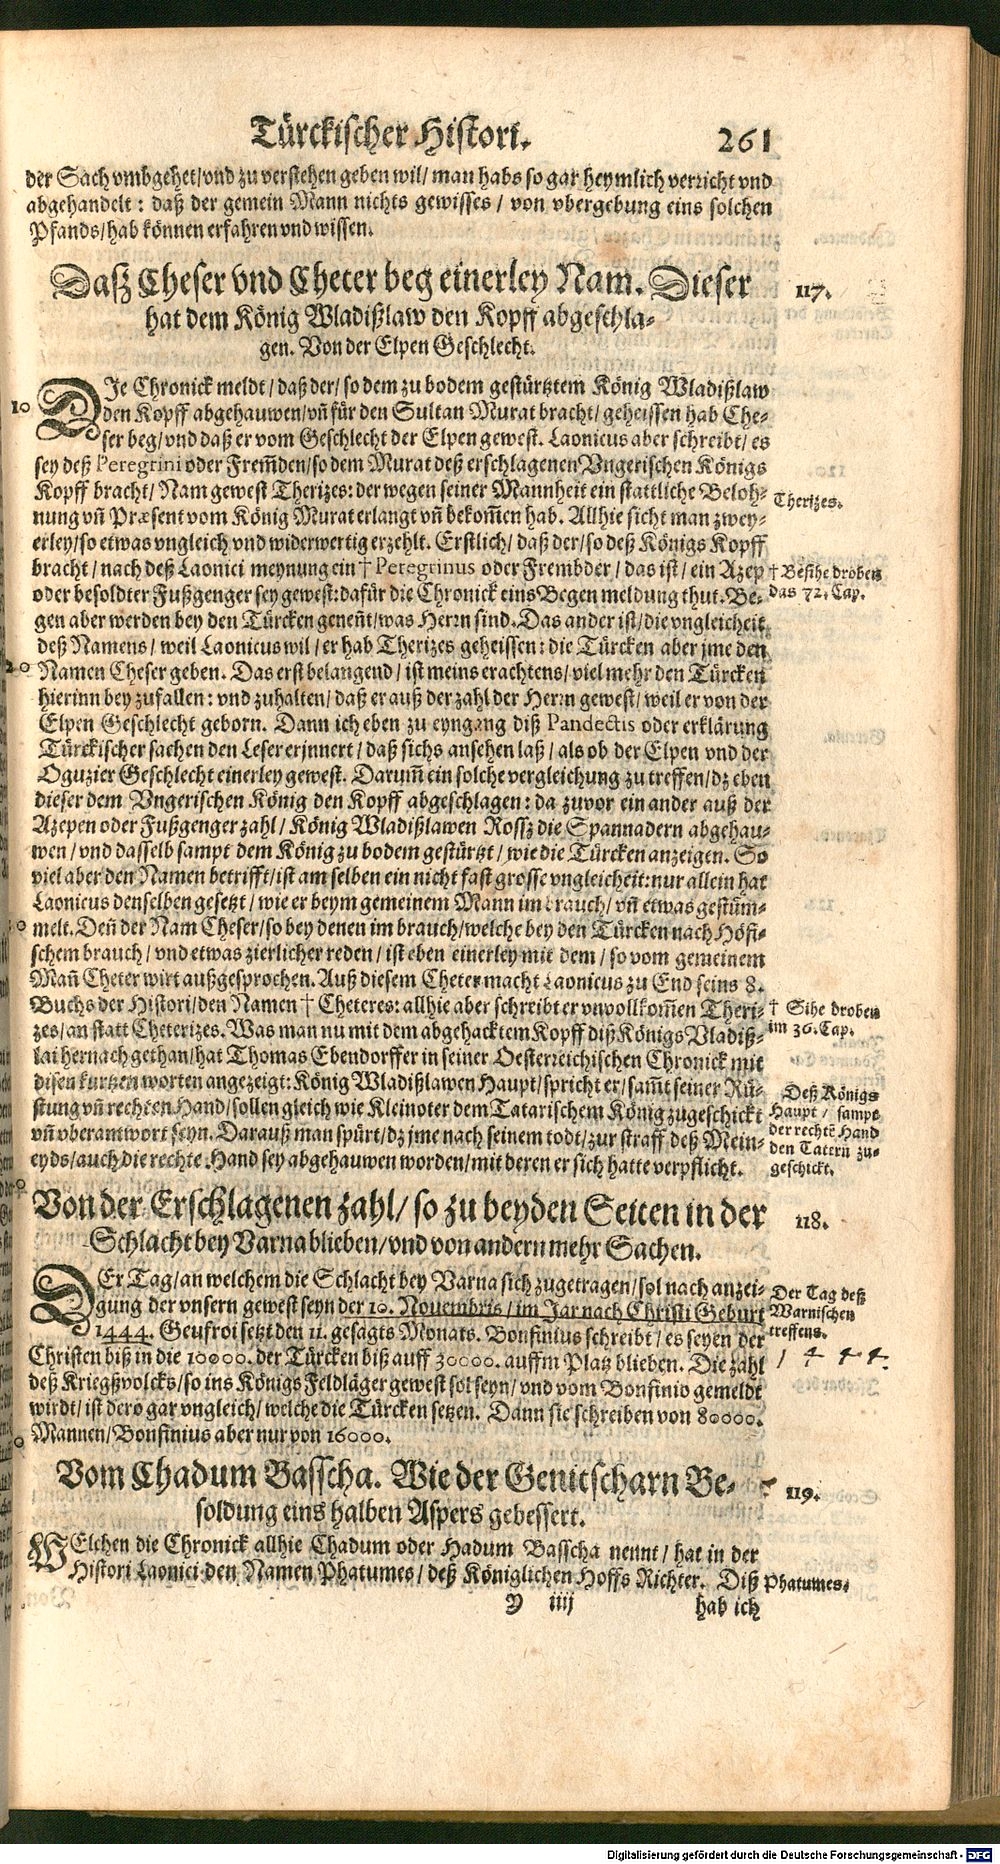 Türckischer Histori. 261
der Sach vmbgehet/vnd zu verstehen geben wil/ man habs so gar heymlich verricht vnd
abgehandelt: daß der gemein Mann nichts gewisses/ von vbergebung eins solchen
Pfands/hab können erfahren vnd wissen.
Dasz Cheser vnd Cheter beg einerley Nam. Dieser 117.
hat dem König Wladißlaw den Kopff abgeschla-
gen. Von der Elpen Geschlecht.
DIe Chronick meldt/ daß der/ so dem zu bodem gestürtztem König Wladißlaw
10 den Kopff abgehauwen/vñ für den Sultan Murat bracht/ geheissen hab Che-
ser beg/vnd daß er vom Geschlecht der Elpen gewest. Laonicus aber schreibt/ es
sey deß Peregrini oder Frem̃den/so dem Murat deß erschlagenen Vngerischen Königs
Kopff bracht/ Nam gewest Therizes: der wegen seiner Mannheit ein stattliche Beloh-
Therizes.
nung vñ Præsent vom König Murat erlangt vñ bekom̃en hab. Allhie sicht man zwey-
erley/so etwas vngleich vnd widerwertig erzehlt. Erstlich/ daß der/so deß Königs Kopff
bracht/ nach deß Laonici meynung ein † Peregrinus oder Frembder/ das ist/ ein Azep
† Besihe droben
oder besoldter Fußgenger sey gewest: dafür die Chronick eins Begen meldung thut. Be-
das 72. Cap.
gen aber werden bey den Türcken geneñt/was Herrn sind. Das ander ist/die vngleicheit
deß Namens/ weil Laonicus wil/ er hab Therizes geheissen: die Türcken aber jme den
20 Namen Cheser geben. Das erst belangend/ ist meins erachtens/ viel mehr den Türcken
hierinn bey zufallen: vnd zuhalten/ daß er auß der zahl der Herrn gewest/ weil er von der
Elpen Geschlecht geborn. Dann ich eben zu eyngang diß Pandectis oder erklärung
Türckischer sachen den Leser erjnnert/ daß sichs ansehen laß/ als ob der Elpen vnd der
Oguzier Geschlecht einerley gewest. Darum̃ ein solche vergleichung zu treffen/dz eben
dieser dem Vngerischen König den Kopff abgeschlagen: da zuvor ein ander auß der
Azepen oder Fußgenger zahl/ König Wladißlawen Rossz die Spannadern abgehau-
wen/ vnd dasselb sampt dem König zu bodem gestürtzt/ wie die Türcken anzeigen. So
viel aber den Namen betrifft/ist am selben ein nicht fast grosse vngleicheit: nur allein hat
Laonicus denselben gesetzt/ wie er beym gemeinem Mann im brauch/ vñ etwas gestüm-
melt. Deñ der Nam Cheser/so bey denen im brauch/welche bey den Türcken nach Höfi-
schem brauch/ vnd etwas zierlicher reden/ ist eben einerley mit dem/ so vom gemeinem
Mañ Cheter wirt außgesprochen. Auß diesem Cheter macht Laonicus zu End seins 8.
Buchs der Histori/den Namen † Cheteres: allhie aber schreibt er vnvollkom̃en Theri-
† Sihe droben
zes/an statt Cheterizes. Was man nu mit dem abgehacktem Kopff diß Königs Vladiß-
im 36. Cap.
lai hernach gethan/hat Thomas Ebendorffer in seiner Oesterreichischen Chronick mit
disen kurtzen worten angezeigt: König Wladißlawen Haupt/spricht er/sam̃t seiner Rü-
stung vñ rechten Hand/sollen gleich wie Kleinoter dem Tatarischem König zugeschickt
vñ vberantwort seyn. Darauß man spürt/dz jme nach seinem todt/zur straff deß Mein-
eyds/auch die rechte Hand sey abgehauwen worden/mit deren er sich hatte verpflicht.
Deß Königs
Haupt/ sampt
der rechtẽ Hand
den Tatern zu-
geschickt.
Von der Erschlagenen zahl/ so zu beyden Seiten in der 118.
Schlacht bey Varna blieben/vnd von andern mehr Sachen.
DEr Tag/an welchem die Schlacht bey Varna sich zugetragen/sol nach anzei-
gung der vnsern gewest seyn der 10. Novembris/im Jar nach Christi Geburt
1444. Geufroi setzt den 11. gesagts Monats. Bonfinius schreibt/ es seyen der
Der Tag deß
Warnischen
treffens.
1444.
Christen biß in die 10000. der Türcken biß auff 30000. auffm Platz blieben. Die zahl
deß Kriegßvolcks/so ins Königs Feldläger gewest sol seyn/vnd vom Bonfinio gemeldt
wirdt/ist dero gar vngleich/welche die Türcken setzen. Dann sie schreiben von 80000.
Mannen/Bonfinius aber nur von 16000.
Vom Chadum Basscha. Wie der Genitscharn Be- 119.
soldung eins halben Aspers gebessert.
WElchen die Chronick allhie Chadum oder Hadum Basscha nennt/ hat in der
Histori Laonici den Namen Phatumes/ deß Königlichen Hoffs Richter. Diß
Phatumes.
y iiij hab ich
Digitalisierung gefördert durch die Deutsche Forschungsgemeinschaft - DFG